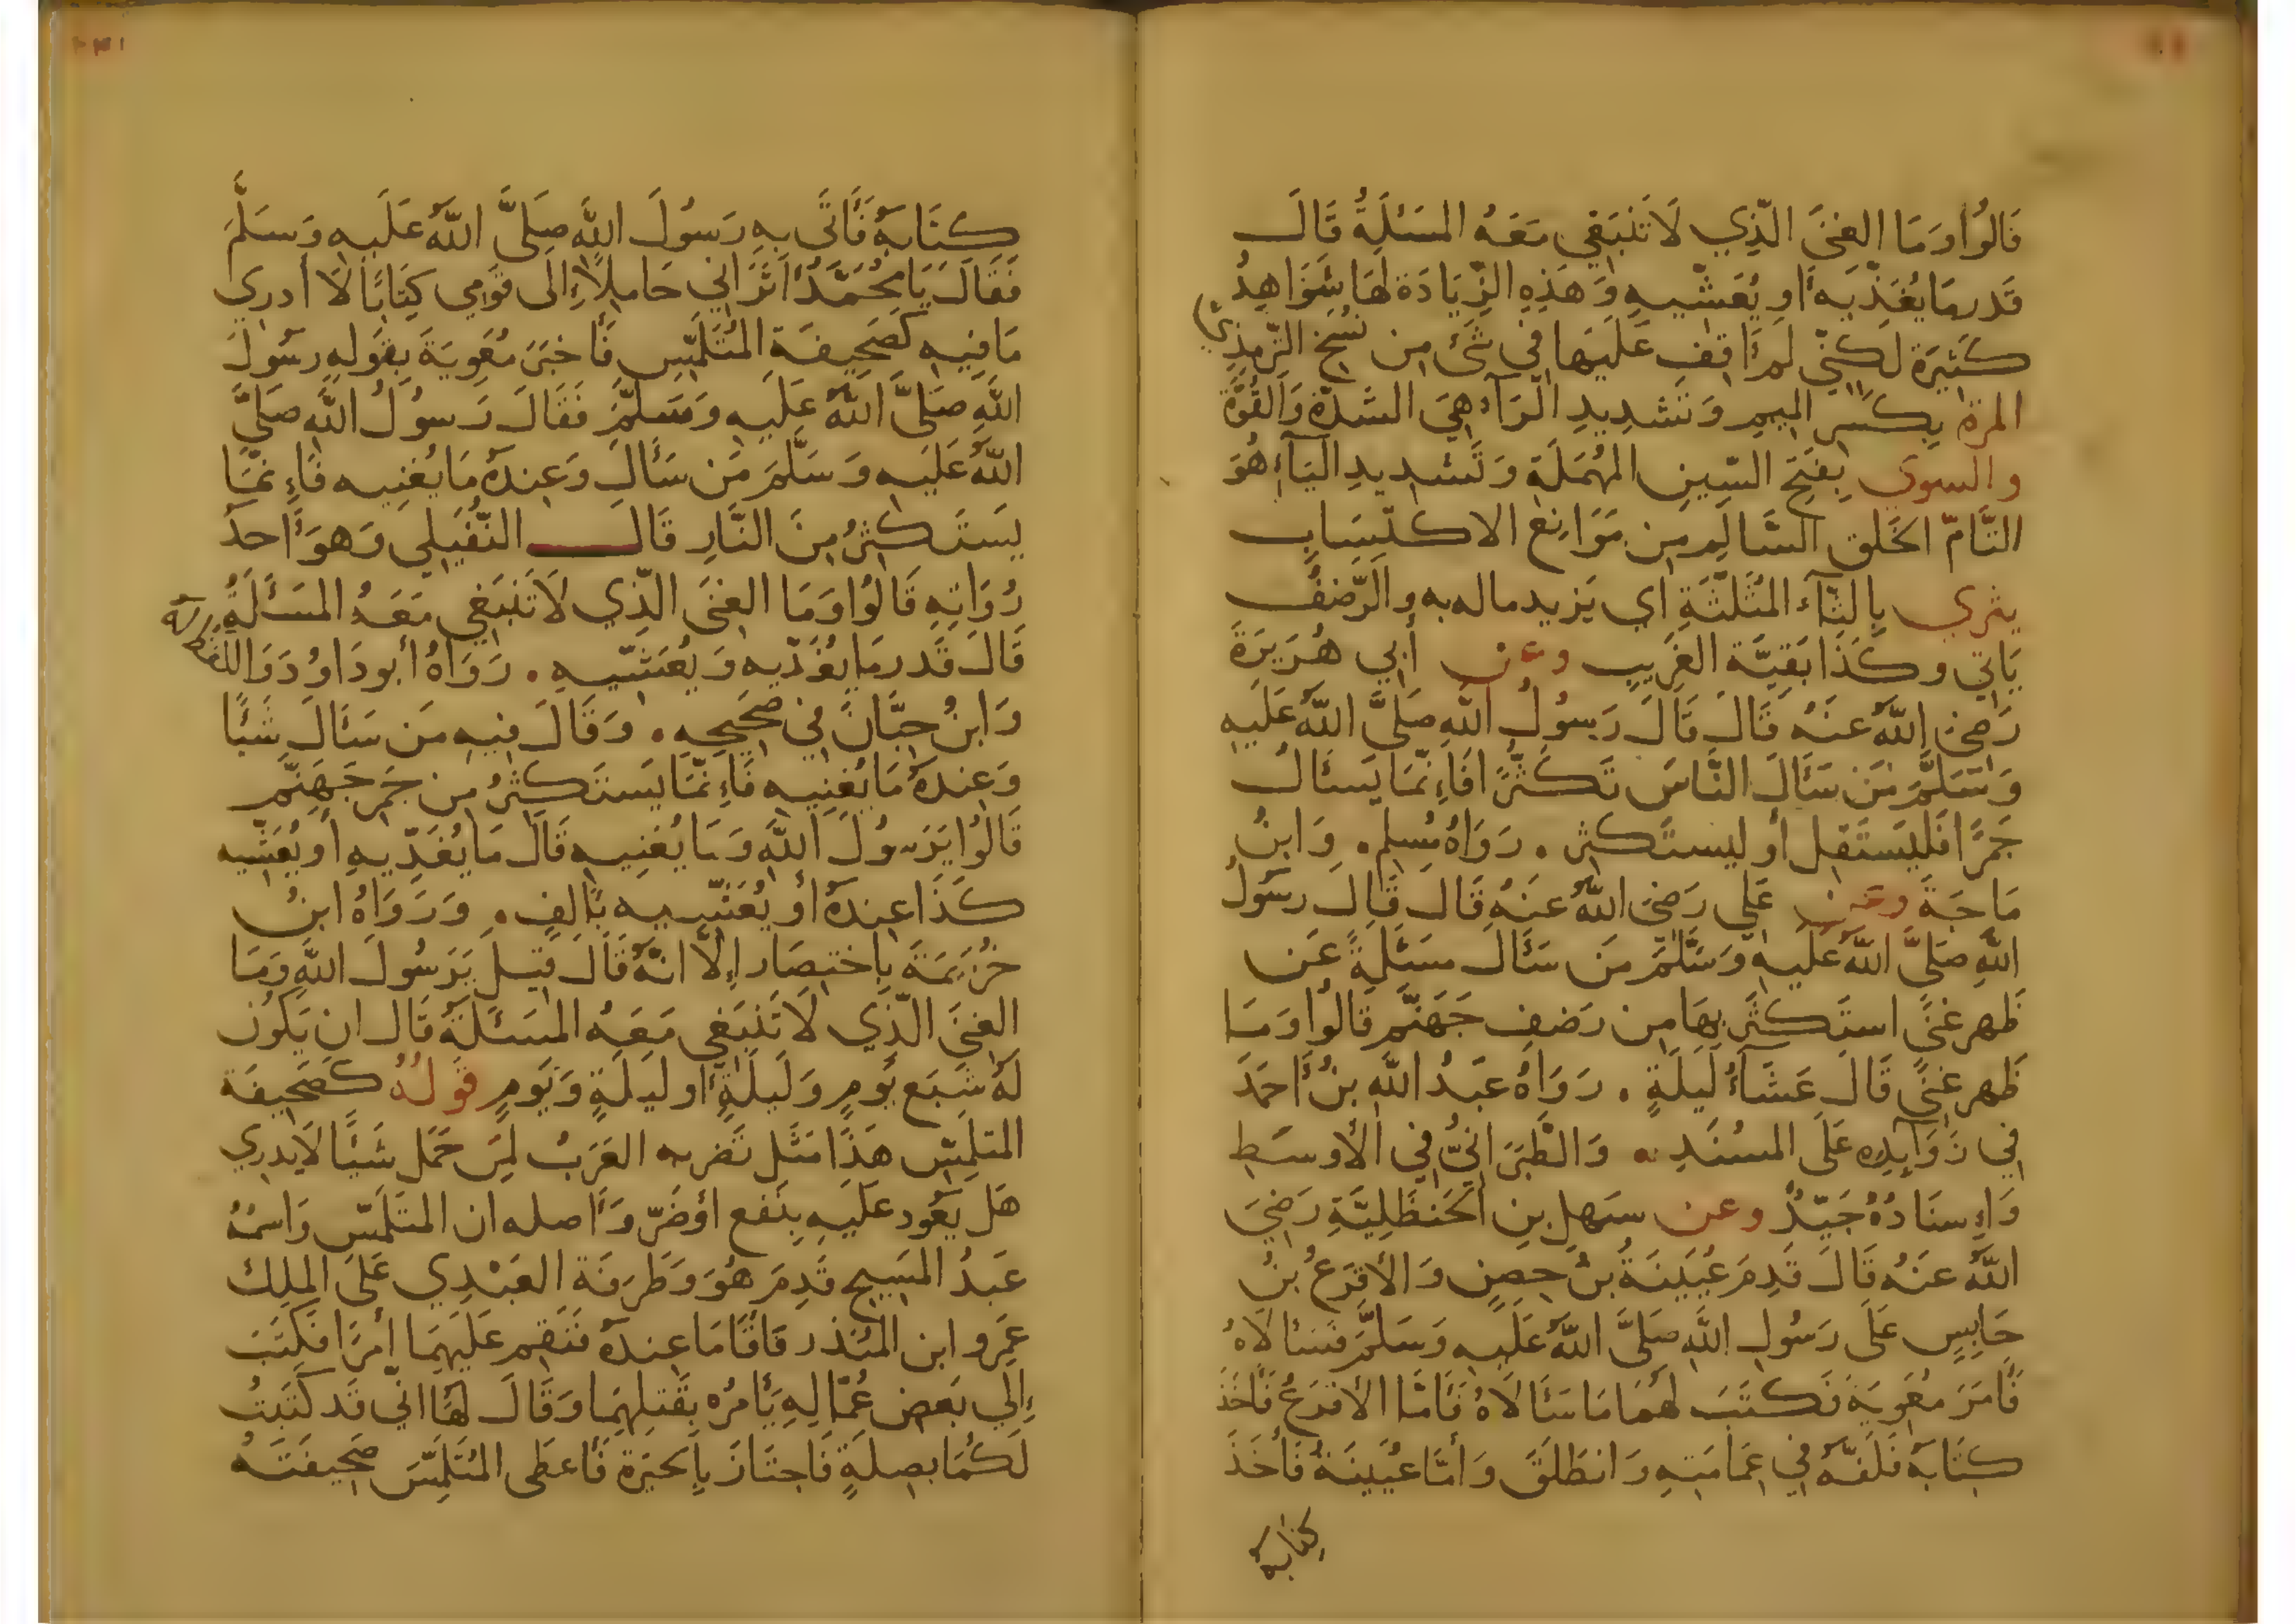 قَالُوا وَمَا الغِنَى الَّذِي لَا تَنبَغِي مَعَهُ المَسْئَلَةُ قَالَ
قَدرمَا يُغَذِّيَهِ أَو يُعَشّيهِ وَهَذِهِ الزِّيَادَة لَهَا شَوَاهِدُ
كَثِيرَة لَكِنِّي لَم أَقِف عَلَيهَا فِي شَئ مِن نُسَخِ التّرمِذِيّ
المرة بِكَسرِ المِيمِ وَتَشدِيدِ الرَآءِ هِيَ الشدّة وَالقُوَّة
والسوي بِفَتحِ السِّينِ المُهمَلَةِ وَتَشدِيدِ اليَآءِ هُوَ
التَّامّ الخَلق السَّالِم مِن مَوَانِع الاكتِسَابِ
يثري بِالثَّآءِ المُثَلَّثَةِ اي يَزيد ماله به والرَّضفُ
يَاتِي وكَذَا بَقِيَّة الغَرِيبِ وعن أَبِي هُرَيرَةَ
رَضِيَ اللَّهُ عَنهُ قَالَ قَالَ رَسُولُ اللَّهِ صَلَّى اللَّهُ عَلَيهِ
وَسَلَّمَ مَن سَئَالَ النَّاسَ تَكَثُّرًا فَإِنَّمَا يَسئَالُ
جَمرًا فَليَستَقِل أَو لِيستَكثِر . رَوَاهُ مُسلِم . وَابنُ
مَاجَةَ وعن عَلِي رَضِيَ اللَّهُ عَنهُ قَالَ قَالَ رسُولُ
اللَّهِ صَلَّى اللَّهُ عَلَيهِ وَسَلَّمَ مَن سَئَالَ مسئَلَةً عَن
ظَهر غِنًى استَكثَر بِهَا مِن رَضفِ جَهَنَّم قَالُوا وَمَا
ظَهر غِنًى قَالَ عَشَآءُ لَيلَةٍ . رَوَاهُ عَبدُ اللَّهِ بنُ أَحمَدَ
فِي زَوَآئِدِه عَلَى المسنَدِ . وَالطَّبَرَانِيُّ فِي الأَوسَطِ
وَإِسنَادُهُ جَيّدٌ وعن سَهلِ بنِ الحَنظَلِيَّةِ رَضِيَ
اللَّهُ عَنهُ قَالَ قَدِمَ عُيَينَةُ بنُ حِصنٍ وَالأَقرَعُ بنُ
حَابِسٍ عَلَى رَسُولِ اللَّهِ صَلَّى اللَّهُ عَلَيهِ وَسَلَّمَ فَسَئَالَاهُ
فَأَمَرَ مُعَوِيَةَ فَكَتَبَ لَهُمَا مَا سَئَالَاهُ فَأَمَّا الأَقرَعُ فَأَخَذَ
كِتَابَهُ فَلَفَّهُ فِي عِمَامَتِهِ وَانطَلَقَ وَأَمَّا عُيَينَةُ فَأَخَذَ
كِتَابَهُ
كِتَابَهُ فَأَتَى بِهِ رَسُولَ اللَّهِ صَلَّى اللَّهُ عَلَيهِ وَسَلَّمَ
فَقَالَ يَا مُحَمَّدُ اتَرَانِي حَامِلًا إِلَى قَومِي كِتَابًا لَا أَدرِي
مَا فِيهِ كَصَحِيفَةِ المُتَلَمِّسِ فَأَخبَرَ مُعَوِيَةَ بِقَولِهِ رسُولَ
اللَّهِ صَلَّى اللَّهُ عَلَيهِ وَسَلَّمَ فَقَالَ رَسُولُ اللَّهِ صَلَّى
اللَّهُ عَلَيهِ وَسَلَّمَ مَن سَئَالَ وَعِندَهُ مَا يُغنِيه فَإِنَّمَا
يَستَكثِرُ مِنَ النَّارِ قَالَ النُّفَيلِي وَهوَ أَحدُ
رُوَاتِهِ قَالُوا وَمَا الغِنَى الَّذِي لَا تَنبَغِي مَعَهُ المَسئَلَةُ
قَالَ قَدرمَا يُغَذِّيهِ وَيُعَشّيهِ . رَوَاهُ أبو دَاوُدَ وَاللَّفظ لَهُ
وَابنُ حِبَّانَ فِي صَحِيحِهِ . وَقَالَ فِيهِ مَن سَئَالَ شَيئًا
وَعِندَهُ مَا يُغنِيهِ فَإِنَّمَا يَستَكثِرُ مِن جَمرِ جَهَنَّم
قَالُوا يَرَسُولَ اللَّهِ وَمَا يُغنِيهِ قَالَ مَا يُغَدِّيهِ أَو يُعَشّيه
كَذَا عِندَهُ أَو يُعَشِّيهِ بِأَلِفٍ . وَرَوَاهُ ابنُ
خُزَيمَةَ بِاختِصَار إِلَّا انَّهُ قَالَ قِيلَ يَرَسُولَ اللَّهِ وَمَا
الغِنَى الَّذِي لَا تَنبَغِي مَعَهُ المَسئَلَةُ قَالَ ان يَكُونَ
لَهُ شِبَع يَومٍ وَلَيلَةٍ أَو لَيلَةٍ وَيَومٍ قَولُهُ كَصَحِيفَة
المتلمِّس هَذَا مَثَل تَضربه العَرَبُ لِمَن حَمَل شَيئًا لَا يَدرِي
هَل يَعُود عَلَيهِ بِنَفع أَو ضَرّ وَأَصله ان المتَلَمِّس وَاسمُهُ
عَبدُ المَسِيحِ قَدِمَ هُوَ وَطَرفَة العَبْدِي عَلَى المَلِكِ
عَمرو ابن المُنذر فَأَقَامَا عِندَهُ فَنَقِم عَلَيهِمَا أَمرًا فَكَتَبَ
إِلَى بَعضِ عُمَّالِهِ يَأمُرُه بِقَتلِهِمَا وَقَالَ لَهُمَا انِّي قَد كَتَبتُ
لَكُمَا بِصِلَةٍ فَاجتَازَ بِالحَيرَة فَأَعطَى المُتَلَمِّسُ صَحِيفَتَهُ